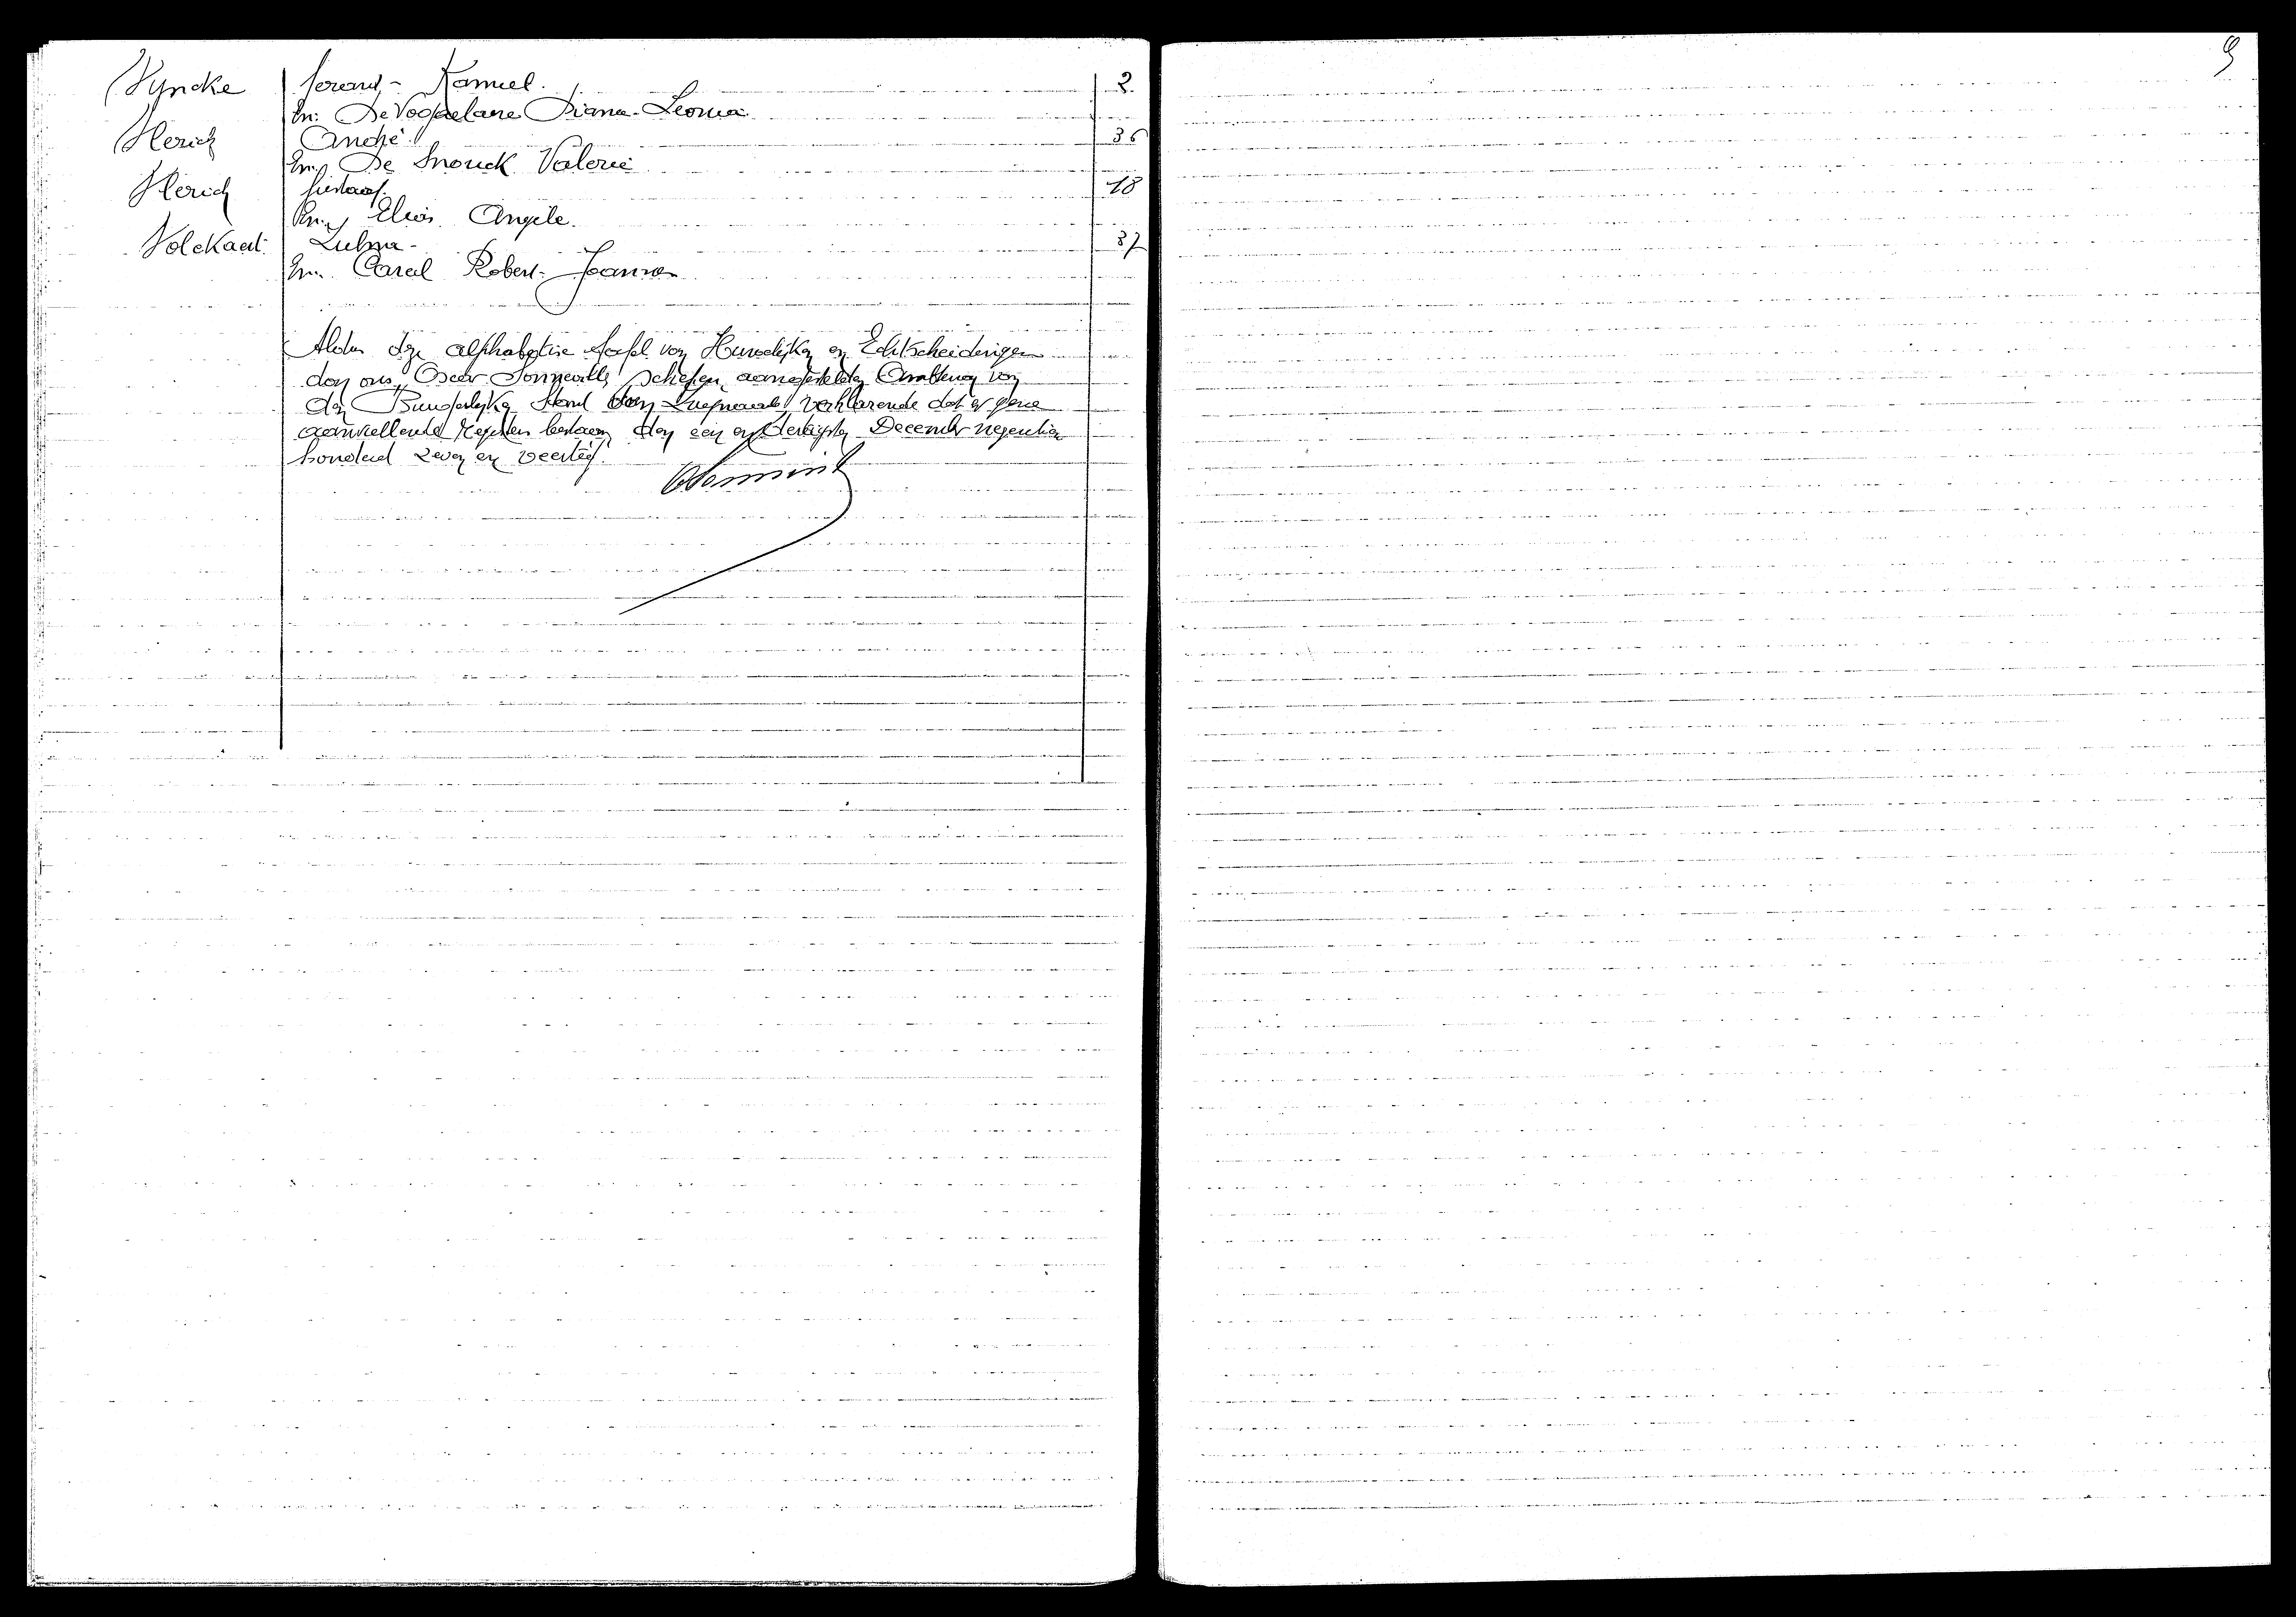 Vyncke Gerard - Kamiel. 2
En. De Vogelaere Diana - Leonia
Herick André 36
En. De Snouck Valerie
Herick Gustaaf. 18
En. Elias Angele.
Volckaert Zulma - 37
En. Careel Robert -
Aldus deze alphabetise tafel van Huwelijken en Echtscheidingen
door ons, Oscar Sonneville, schepen, aangestelden Ambtenaar van
den Burgerlijken Stand van verklarende dat er geene
aanvullende Registers bestaan, den een en dertigsten December negentien
honderd zeven en veertig.
9